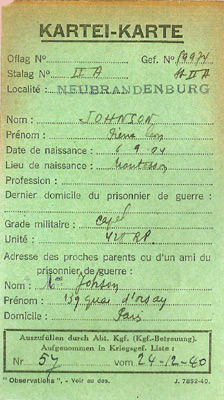 KARTEI-KARTE
Oflag Nº Gef. Nº 19974
Stalag Nº II A II A
Localité : NEUBRANDENBURG
Nom : JOHNSON
Prénom : Pierre
Date de naissance : 6 9 04
Lieu de naissance :
Profession :
Dernier domicile du prisonnier de guerre :
Grade militaire : Capl
Unité : 420 RP.
Adresse des proches parents ou d'un ami du
prisonnier de guerre :
Nom : Me Johson
Prénom : 159 quai d'orsay
Domicile : Paris
Auszufüllen durch Abt. Kgf. (Kgf.-Betreuung).
Aufgenommen in Kriegsgef. Liste :
Nr 57 vom 24-12-40
"Observations". - Voir au dos. J. 7852-40.